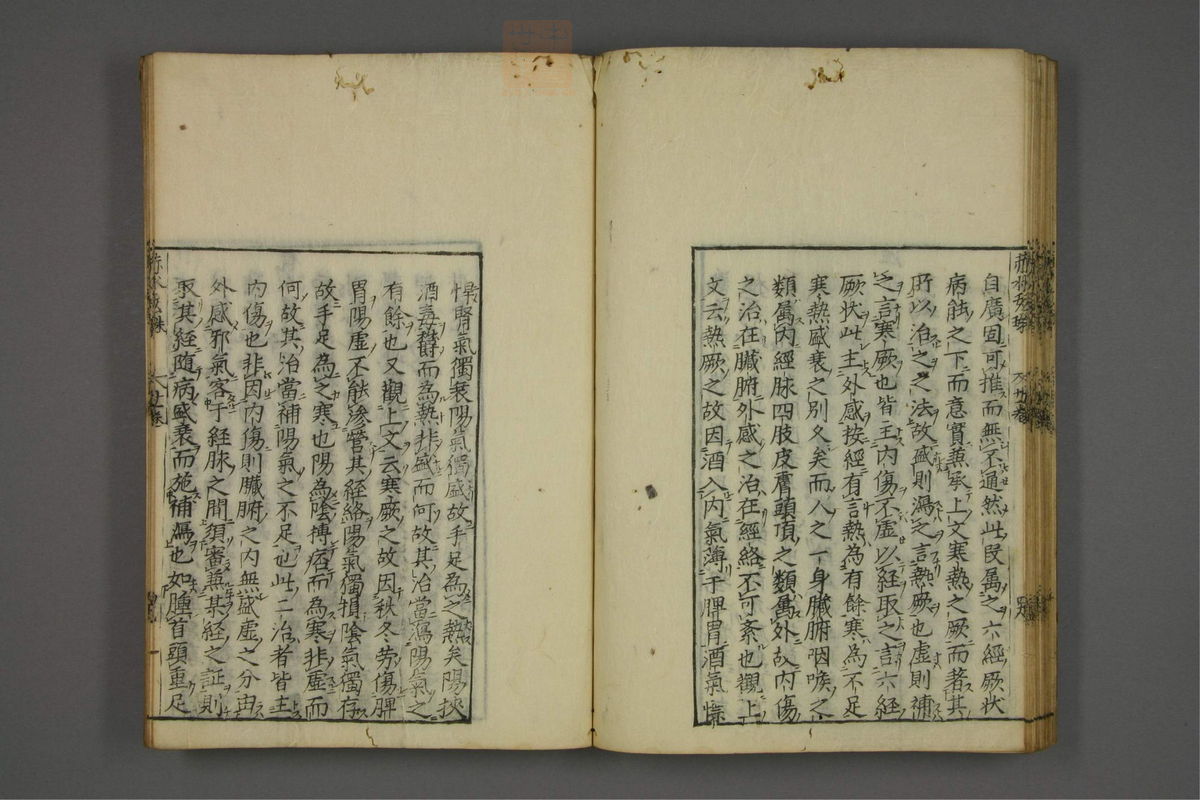 自廣固可推而無不通然此段属之六經厥状
病能之下而意實蒸承上文寒熱之厥而著其
所以治之之法故盛則瀉之言熱厥也虚則補
之言寒厥也皆主内傷不虚以經取之言六經
厥状此主外感按經有言熱為有餘寒為不足
寒熱盛衰之別久矣而人之一身臓腑咽喉之
類属内經脉四肢皮膚頭頂之類属外故内傷
之治在臓腑外感之治在經絡不可紊也觀上
文云熱厥之故因酒入内氣薄于脾胃酒氣慓
悍腎氣獨衰陽氣獨盛故手足為之熱矣陽挾
酒毒欝而為熱非盛而何故其治當瀉陽氣之
有餘也又觀上文云寒厥之故因秋冬労傷脾
胃陽虚不能滲營其經絡陽氣獨損陰氣獨存
故手足為之寒也陽為陰搏痞而為寒非虚而
何故其治當補陽氣之不足也此二治者皆主
内傷也非因内傷則臓腑之内無盛虚之分由
外感邪氣客于經脉之間須審蒸某經之証則
取其經随病盛衰而施補瀉也如腫首頭重足